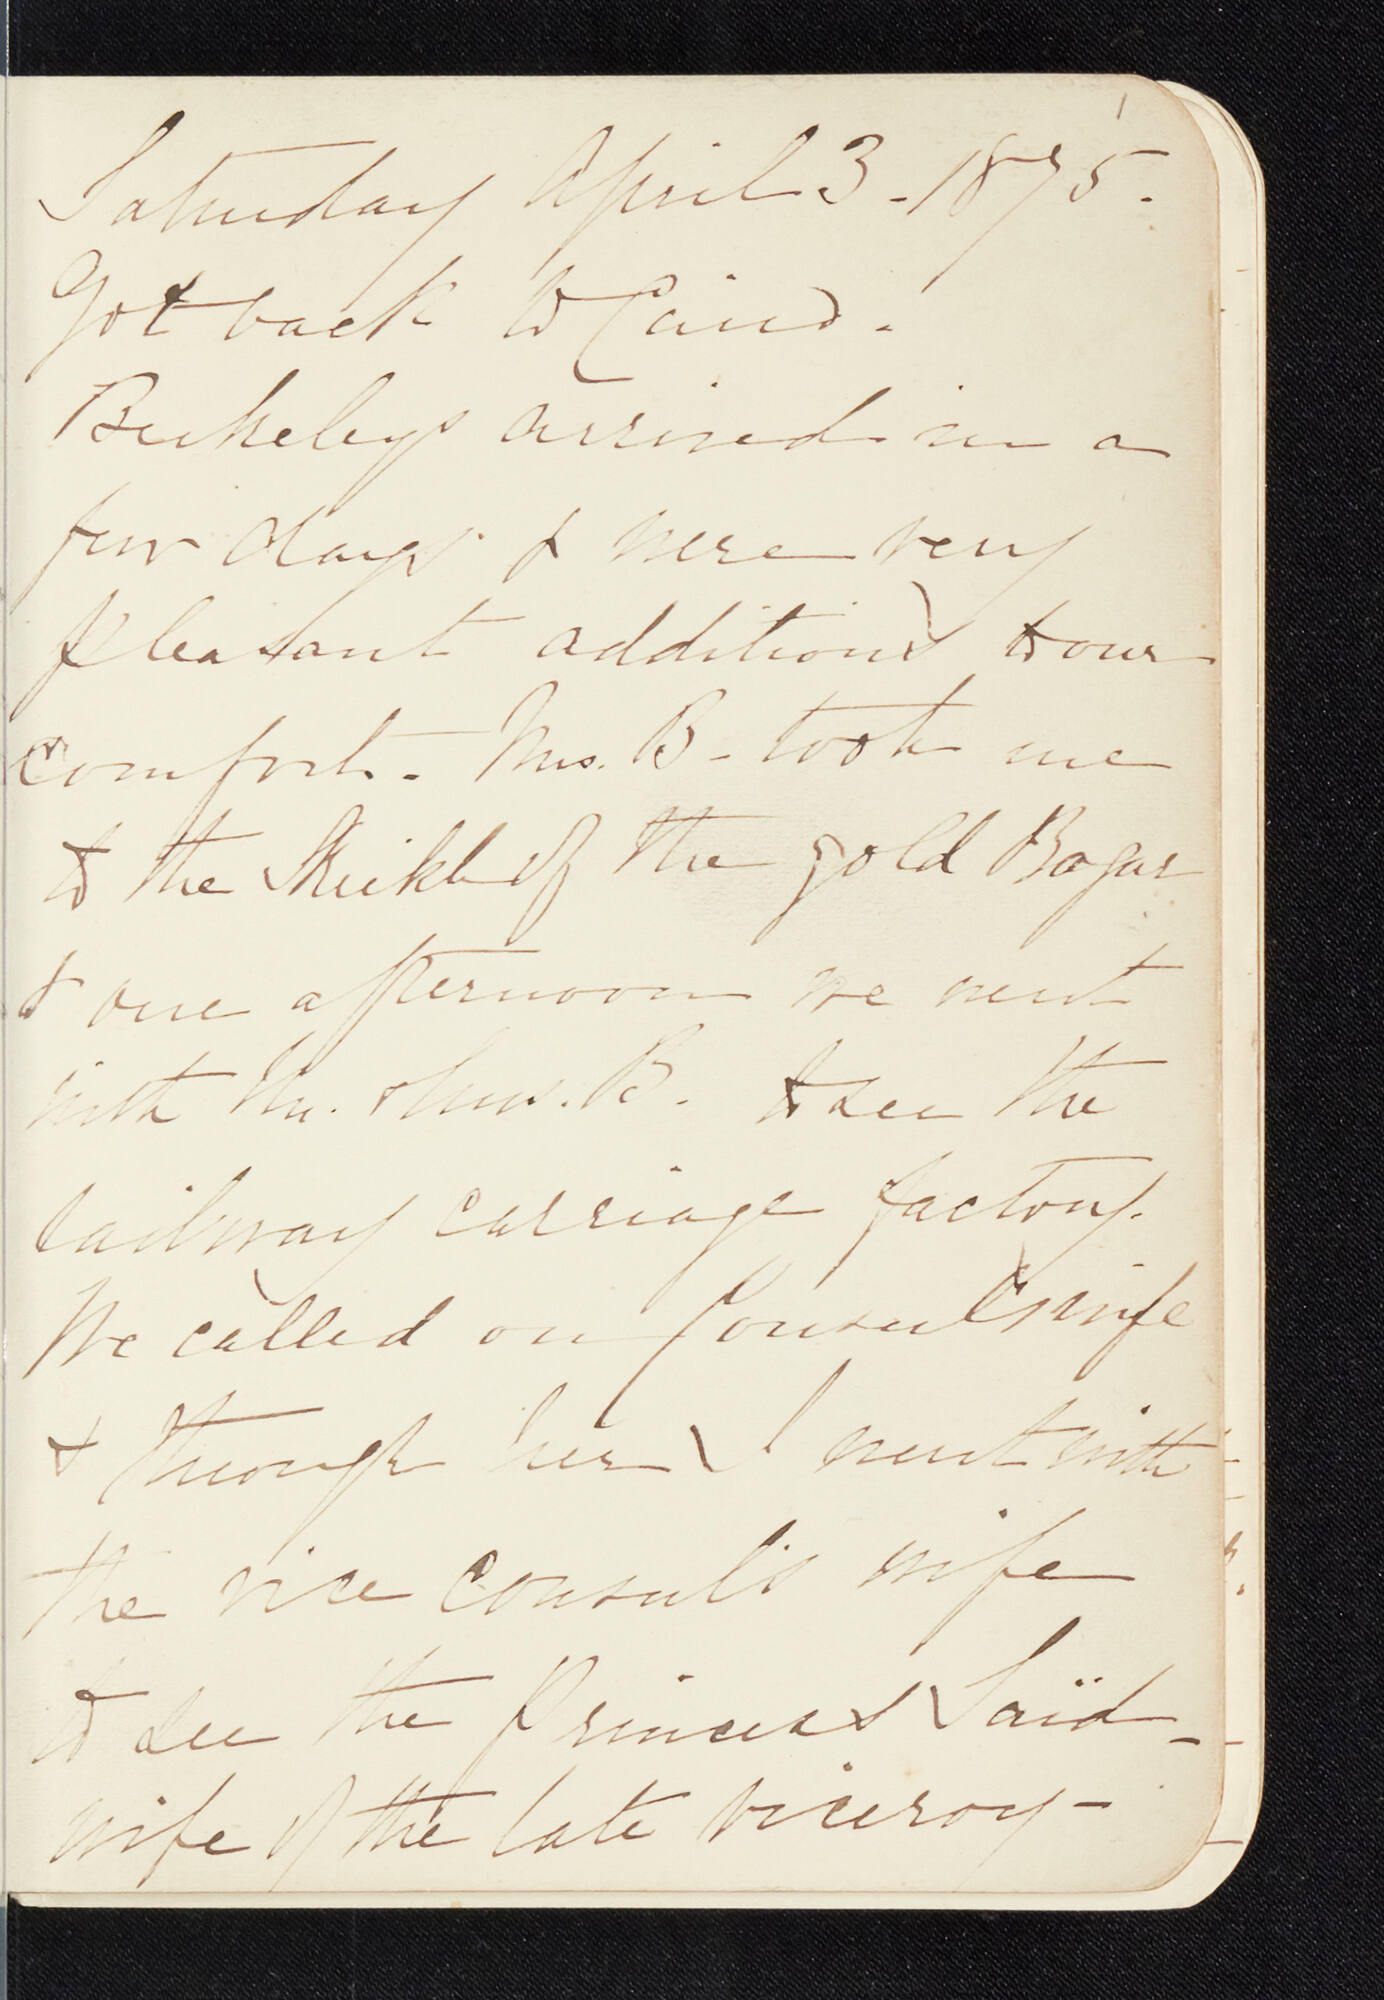 Saturday April 3. 1875.
Got back to Cairo.
Berkeleys arrived in a
few days & were very
pleasant additions to our
comfort. Mrs. B - took me
to the Sheikh of the gold Bazar
& one afternoon we went
with Mr. & Mrs. B. to see the
railway carriage factory.
We called on Consul's wife
& through her I went with
the vice consul's wife
to see the Princess Saïd -
wife of the late viceroy -